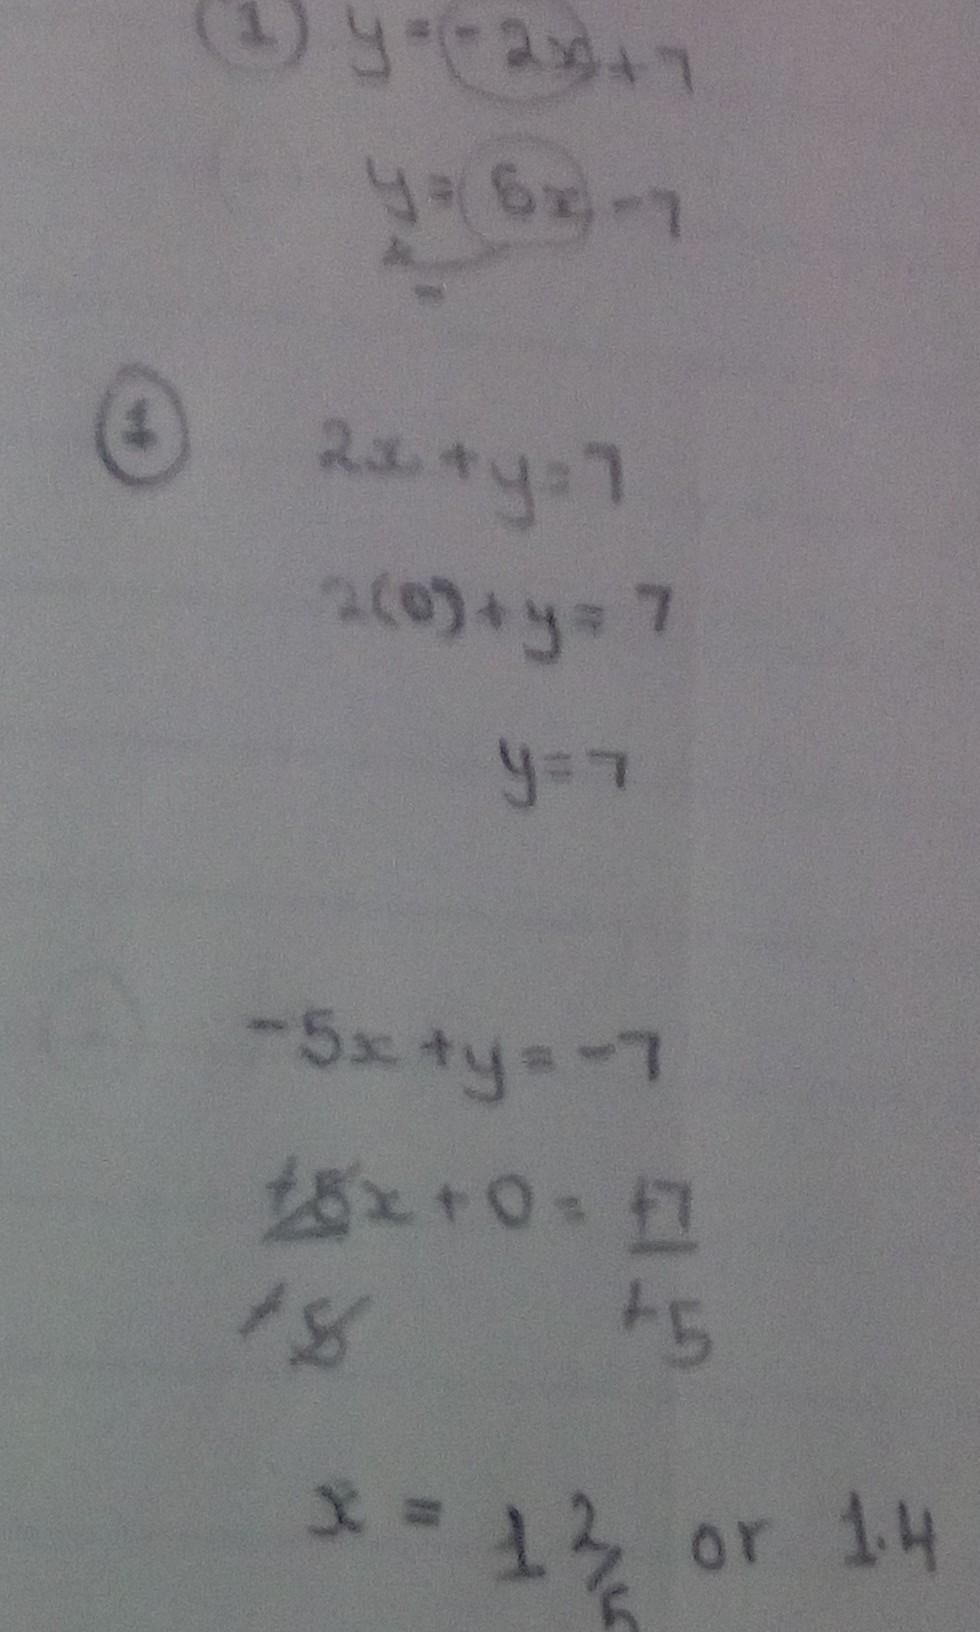 1 y = -2x + 7
y = 5x - 7
1 2x + y = 7
2(0) + y = 7
y = 7
-5x + y = -7
+5x + 0 = +7
+5 +5
x = 1 2/5 or 1.4